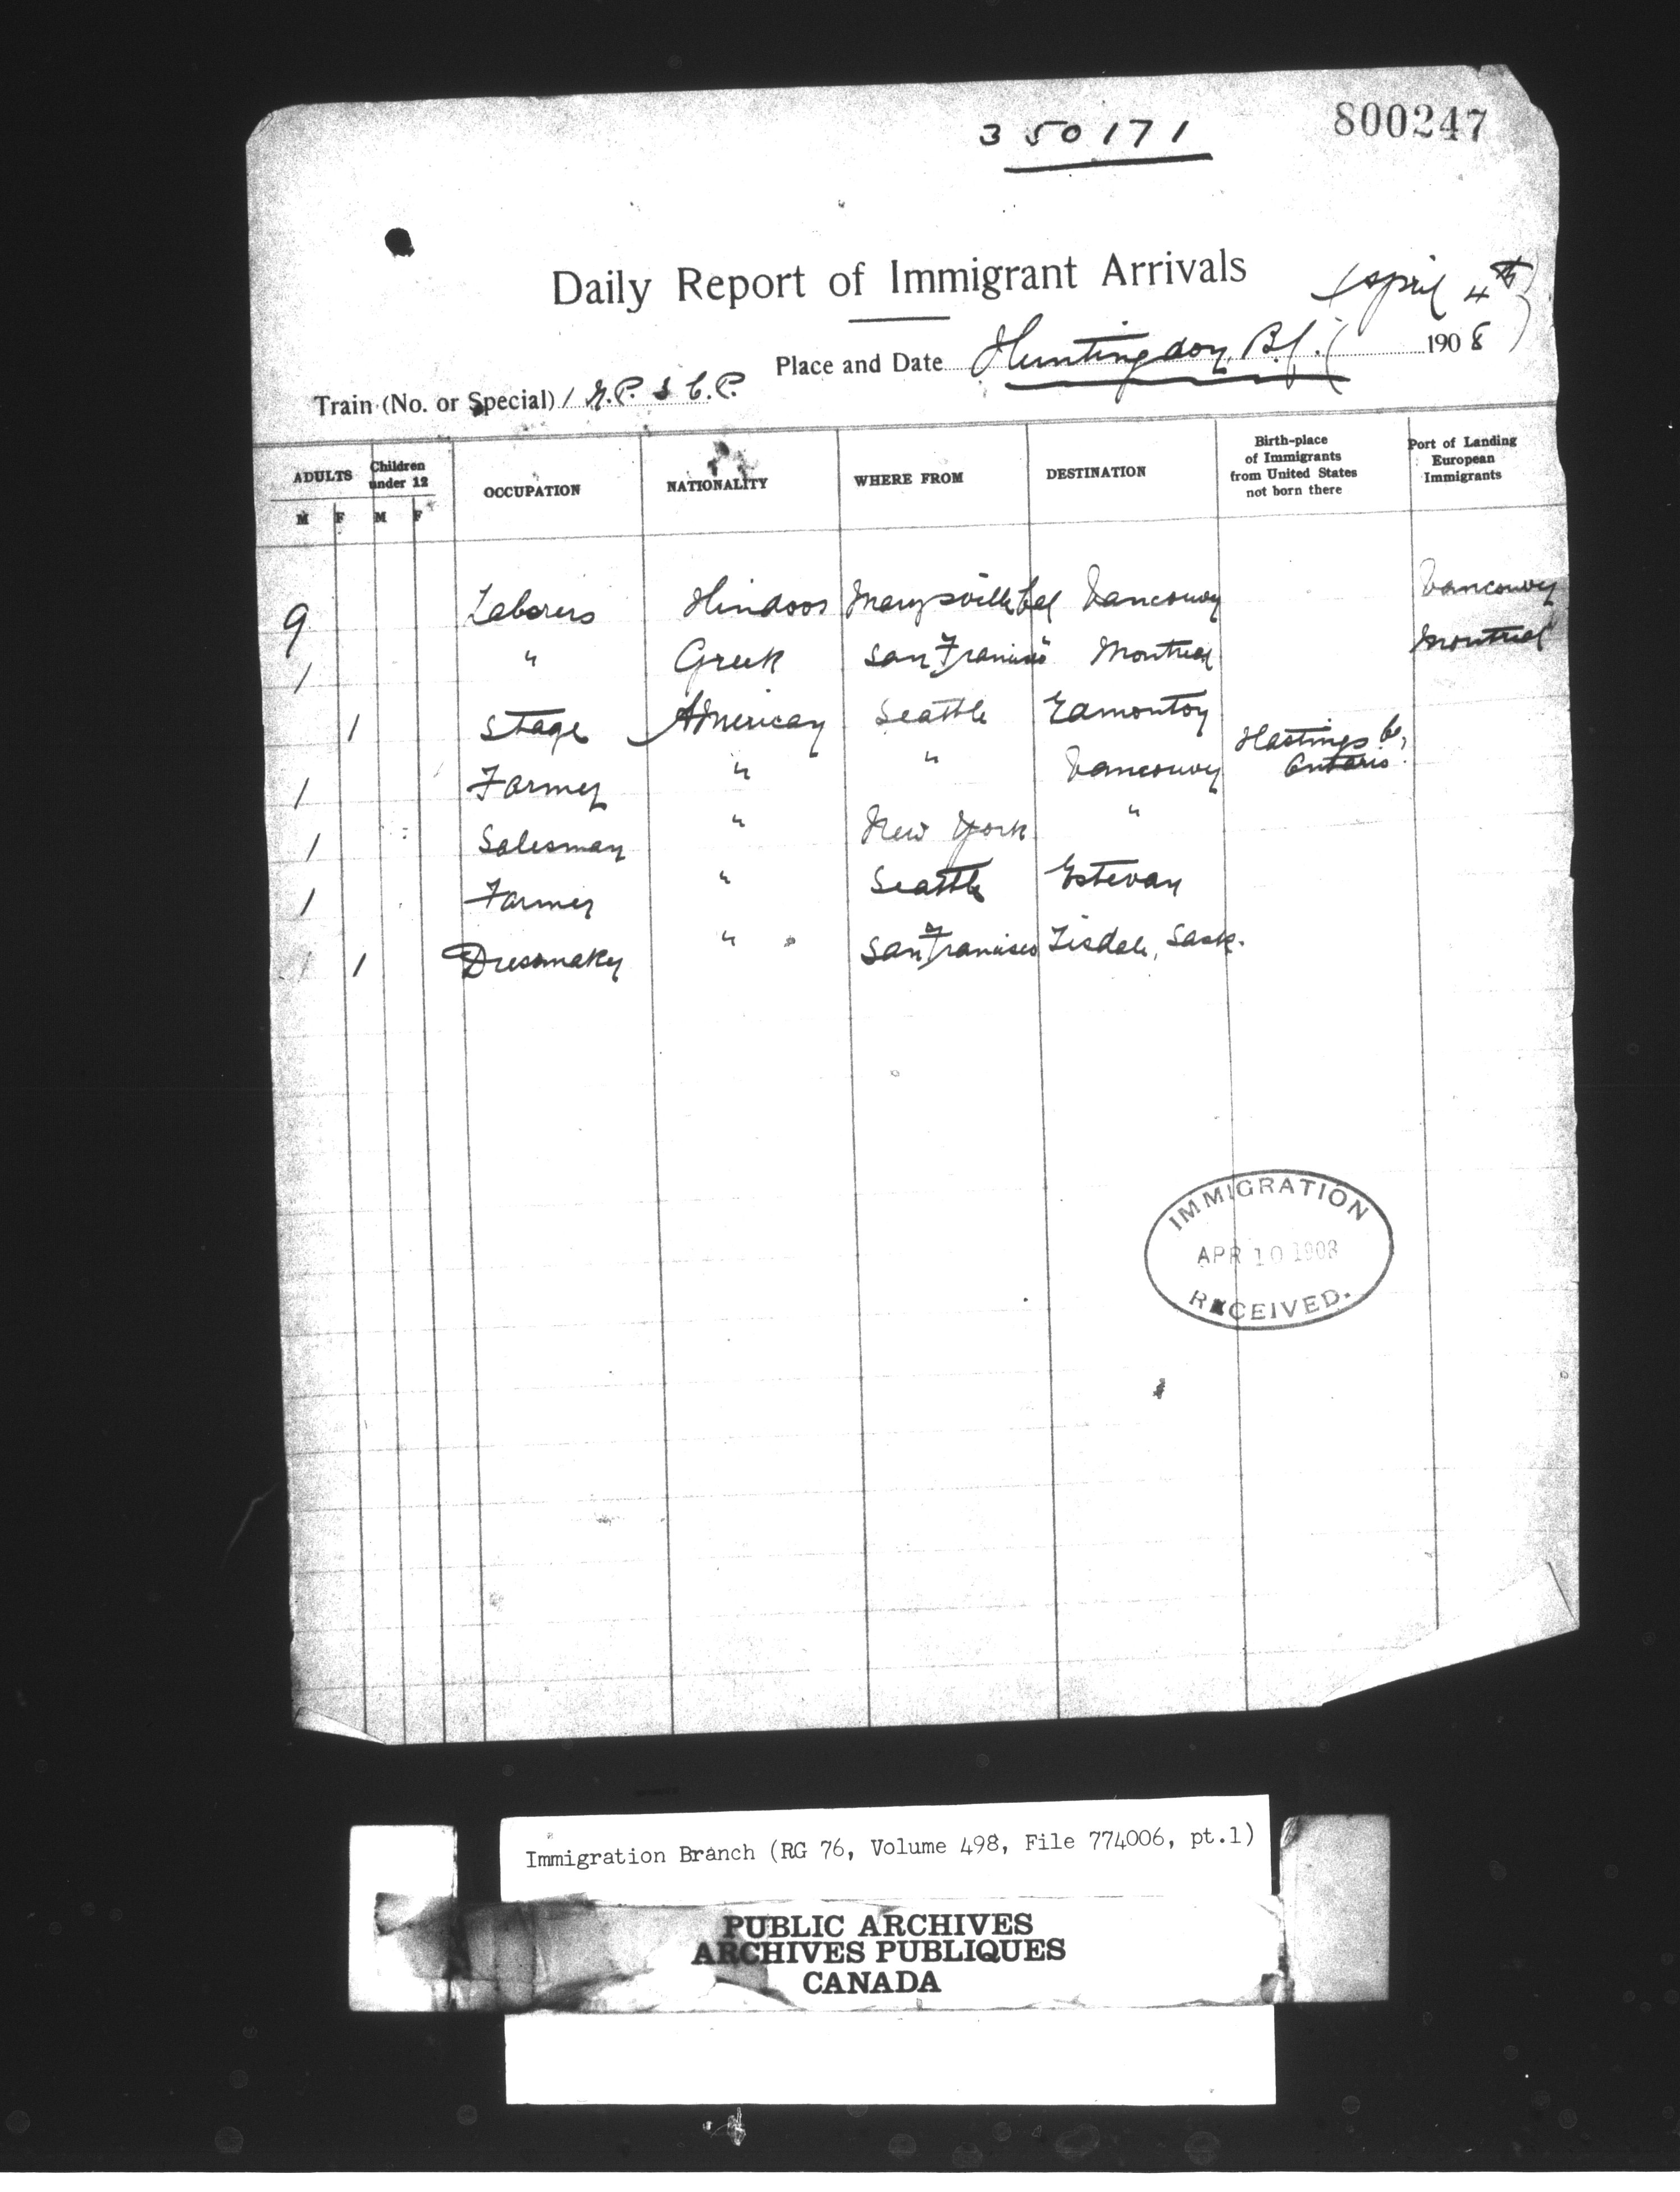 350171
800247
Daily Report of Immigrant Arrivals
April 4th
Place and Date Huntingdon, B.C. 1908
Train (No. or Special) C.P.
ADULTS Children under 12 OCCUPATION NATIONALITY WHERE FROM DESTINATION Birth-place of Immigrants from United States not born there Port of Landing European Immigrants
M F M F
9 Laborers Hindoos Marysville Cal Vancouver Vancouver
1 " Greek San Francisco Montreal Montreal
1 Stage American Seattle Edmonton
1 Farmer " " Vancouver Hastings Co, Ontario.
1 Salesman " New York "
1 Farmer " Seattle Estevan
1 Dressmaker " San Francisco Tisdale, Sask.
IMMIGRATION
APR 10 1908
RECEIVED.
Immigration Branch (RG 76, Volume 498, File 774006, pt.1)
PUBLIC ARCHIVES
ARCHIVES PUBLIQUES
CANADA